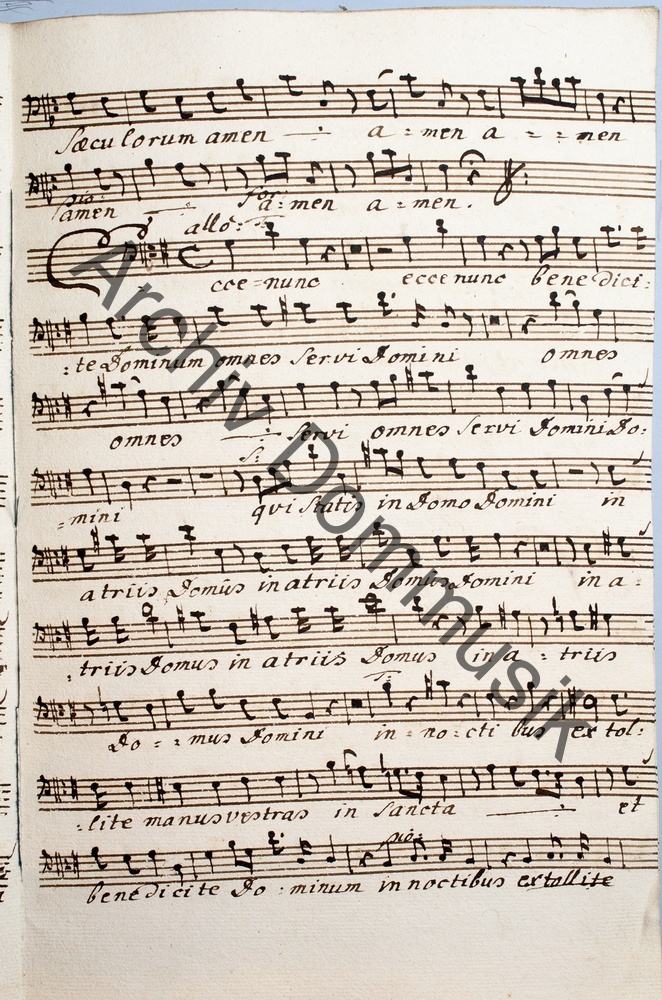 Sæculorum amen a = men a = = men
pio: for
amen a = men a = men.
allo:
cce = nunc ecce nunc benedici:
:te Dominum omnes Servi Domini omnes
omnes Servi omnes Servi Domini Do:
S:
= mini qui statis in Domo Domini in
atriis Domus in atriis Domus Domini in a =
:triis Domus in atriis Domus in a = triis
T:
Do = = mus Domini in = no = cti bus ex tol:
:lite manus vestras in Sancta et
pio:
benedicite Do : minum in noctibus extollite
Archiv Dommusik